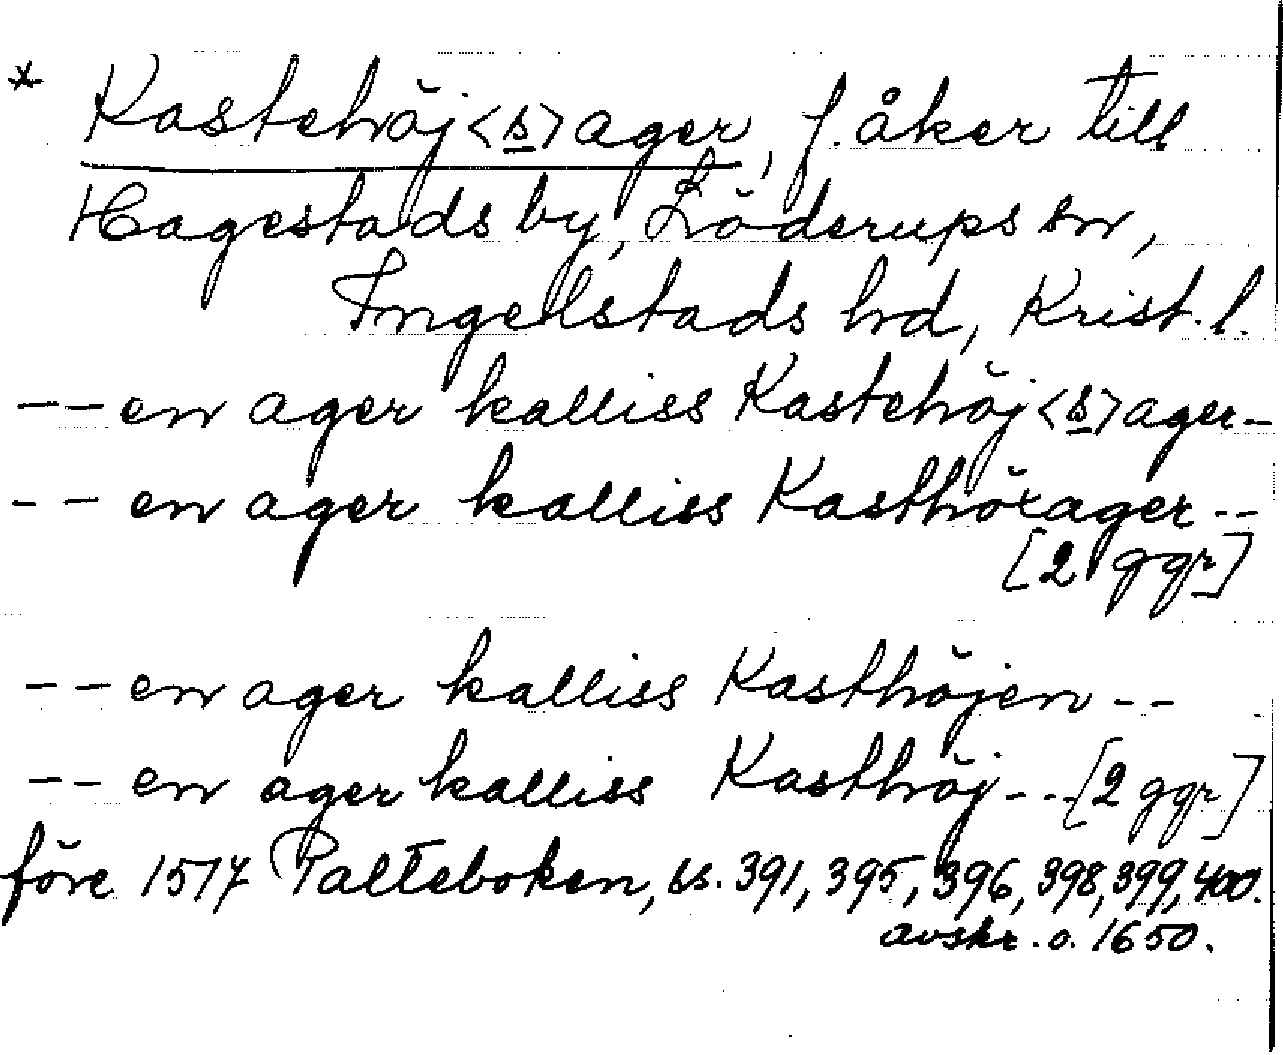 * Kastehöj<s>ager, f. åker till
Hagestads by, Löderups sn,
Ingelstads hd, Krist. l.
-- en ager kalliss Kastehöj<s>ager-
-- en ager kalliss Kasthöxager--
[2 ggr]
-- en ager kalliss Kasthöjen --
-- en ager kalliss Kasthöj --- [2 ggr]
före 1517 Palteboken, ss. 391, 395, 396, 398, 399, 400.
avskr. o. 1650.